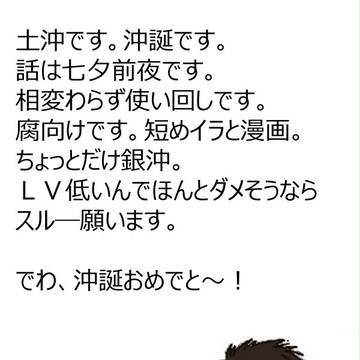 土沖です。沖誕です。
話は七夕前夜です。
相変わらず使い回しです。
腐向けです。短めイラと漫画。
ちょっとだけ銀沖。
ＬＶ低いんでほんとダメそうなら
スル―願います。
でわ、沖誕おめでと～！